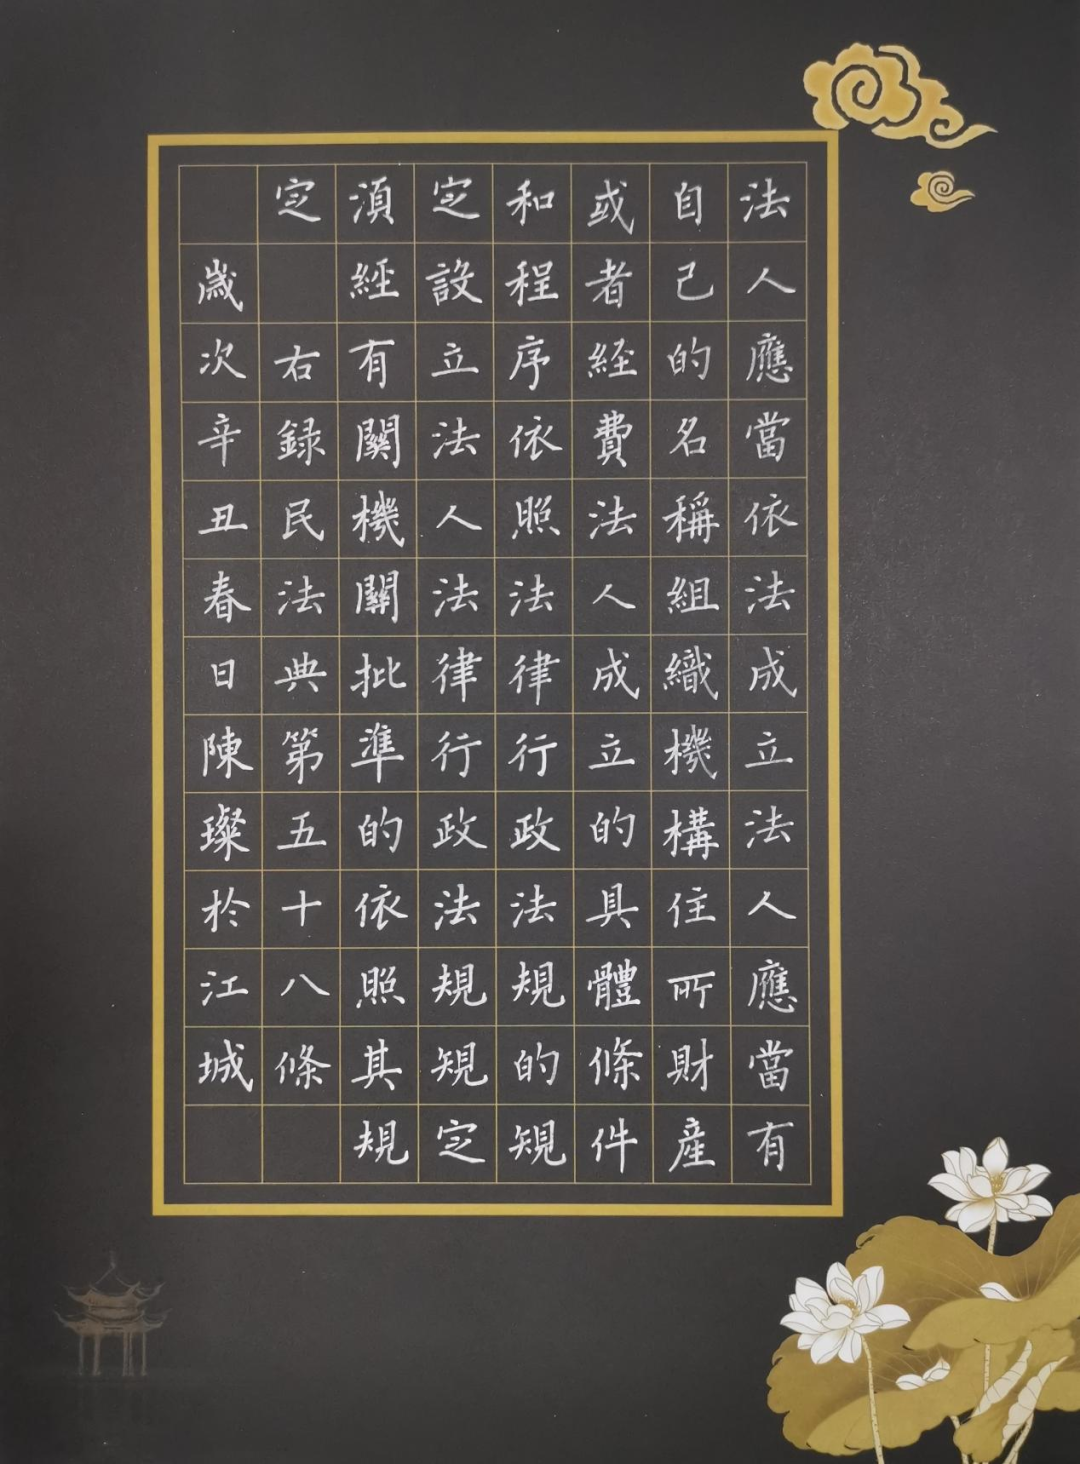 法人應當依法成立法人應當有
自己的名稱組織機構住所財產
或者經費法人成立的具體條件
和程序依照法律行政法規的規
定設立法人法律行政法規規定
須經有關機關批準的依照其規
定
右録民法典第五十八條
歲次辛丑春日陳璨於江城